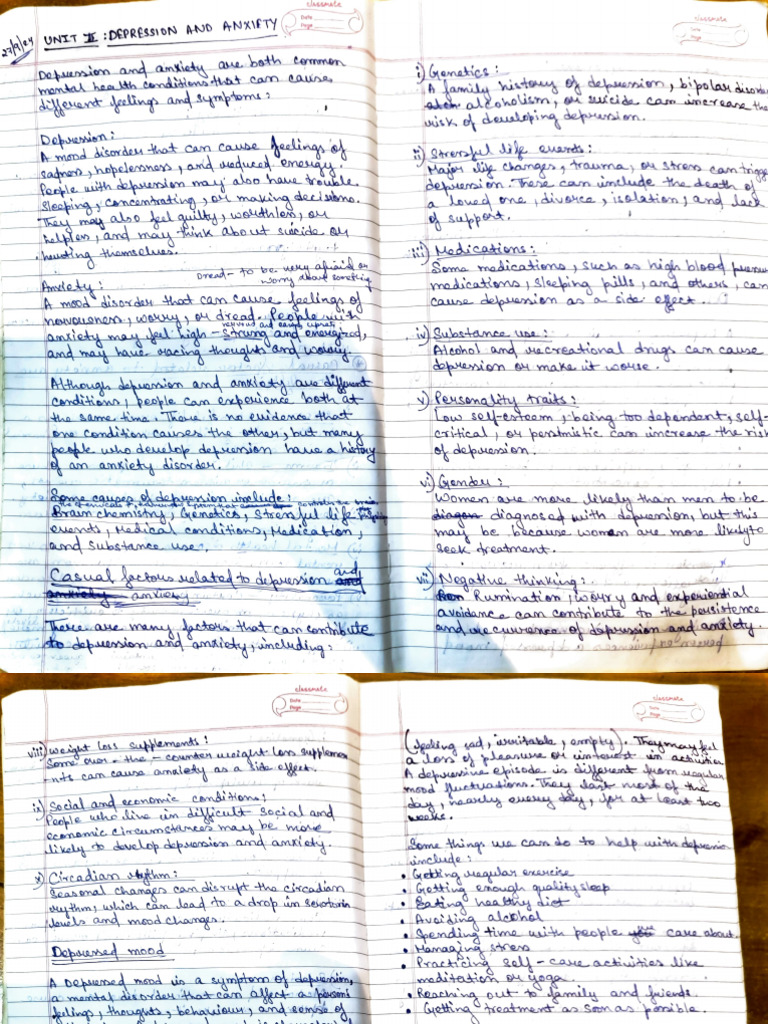 classmate
Date
Page
27/9/24
UNIT II : DEPRESSION AND ANXIETY
Depression and anxiety are both common
mental health conditions that can cause
different feelings and symptoms:
Depression:
A mood disorder that can cause feelings of
sadness, hopelessness, and reduced energy.
People with depression may also have trouble
sleeping, concentrating, or making decisions.
They may also feel guilty, worthless, or
helpless, and may think about suicide or
hurting themselves.
Dread - to be very afraid or
worry about something
Anxiety:
A mood disorder that can cause feelings of
nervousness, worry, or dread. People with
nervous and easily upset
anxiety may feel high-strung and energized,
and may have racing thoughts and worry
Although depression and anxiety are different
conditions, people can experience both at
the same time. There is no evidence that
one condition causes the other, but many
people who develop depression have a history
of an anxiety disorder.
Some causes of depression include:
Brain chemistry, Genetics, Stressful life
events, Medical conditions, Medication,
and substance use.
Casual factors related to depression and
anxiety
There are many factors that can contribute
to depression and anxiety, including:
classmate
Date
Page
i) Genetics:
A family history of depression, bipolar disorder
alcoholism, or suicide can increase the
risk of developing depression.
ii) Stressful life events:
Major life changes, trauma, or stress can trigg
depression. These can include the death of
a loved one, divorce, isolation, and lack
of support.
iii) Medications:
Some medications, such as high blood pressure
medications, sleeping pills, and others, can
cause depression as a side effect.
iv) Substance use:
Alcohol and recreational drugs can cause
depression or make it worse.
v) Personality traits:
Low self-esteem, being too dependent, self-
critical, or pessimistic can increase the risk
of depression.
vi) Gender:
Women are more likely than men to be
diagnosed with depression, but this
may be because women are more likely to
seek treatment.
vii) Negative thinking:
Rumination, worry and experiential
avoidance can contribute to the persistence
and recurrence of depression and anxiety.
classmate
Date
Page
viii) Weight loss supplements:
Some over-the-counter weight loss suppleme
nts can cause anxiety as a side effect.
ix) Social and economic conditions:
People who live in difficult social and
economic circumstances may be more
likely to develop depression and anxiety.
x) Circadian rhythm:
Seasonal changes can disrupt the circadian
rythm, which can lead to a drop in serotonin
levels and mood changes.
Depressed mood
A Depressed mood is a symptom of depression,
a mental disorder that can affect a
feelings, thoughts, behaviour, and sense of
classmate
Date
Page
(feeling sad, irritable, empty). They may feel
a loss of pleasure or interest in activities
A depressive episode is different from regular
mood fluctuations. They last most of the
day, nearly every day, for at least two
weeks.
Some things we can do to help with depression
include:
• Getting regular exercise
• Getting enough quality sleep
• Eating healthy diet
• Avoiding alcohol
• Spending time with people care about.
• Managing stress
• Practicing self-care activities like
meditation or yoga.
• Reaching out to family and friends.
• Getting treatment as soon as possible.